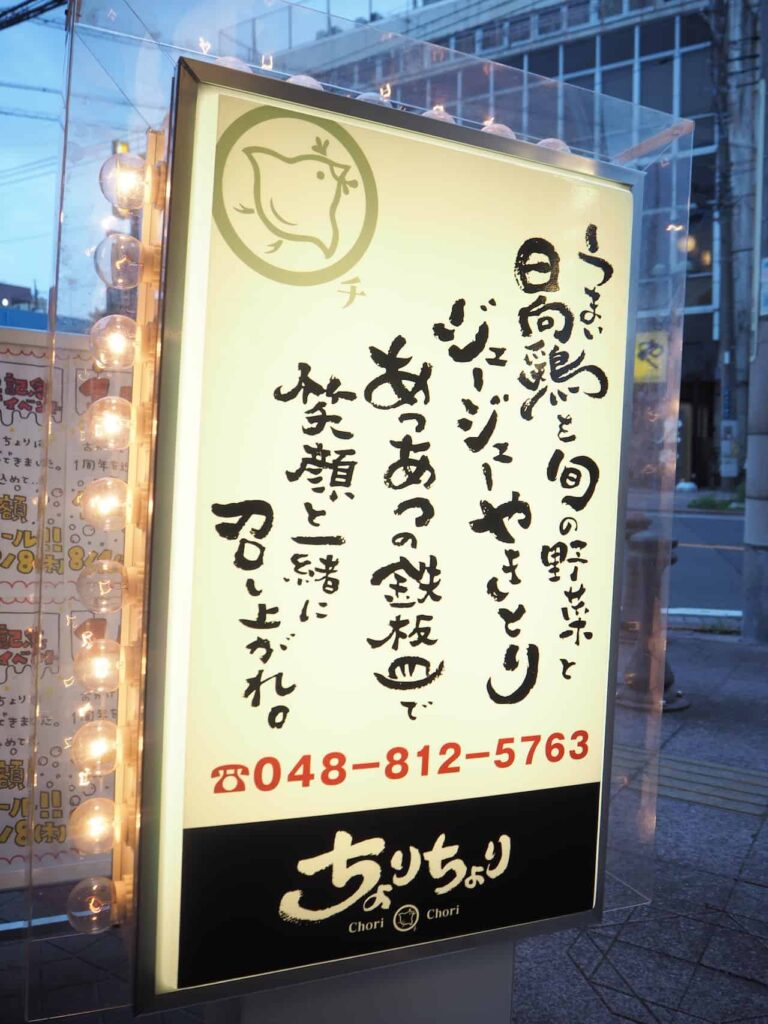 チ
うまい
日向鶏と旬の野菜と
ジュージューやきとり
あつあつの鉄板皿で
笑顔と一緒に
召し上がれ。
☎048-812-5763
ちょりちょり
Chori Chori
や